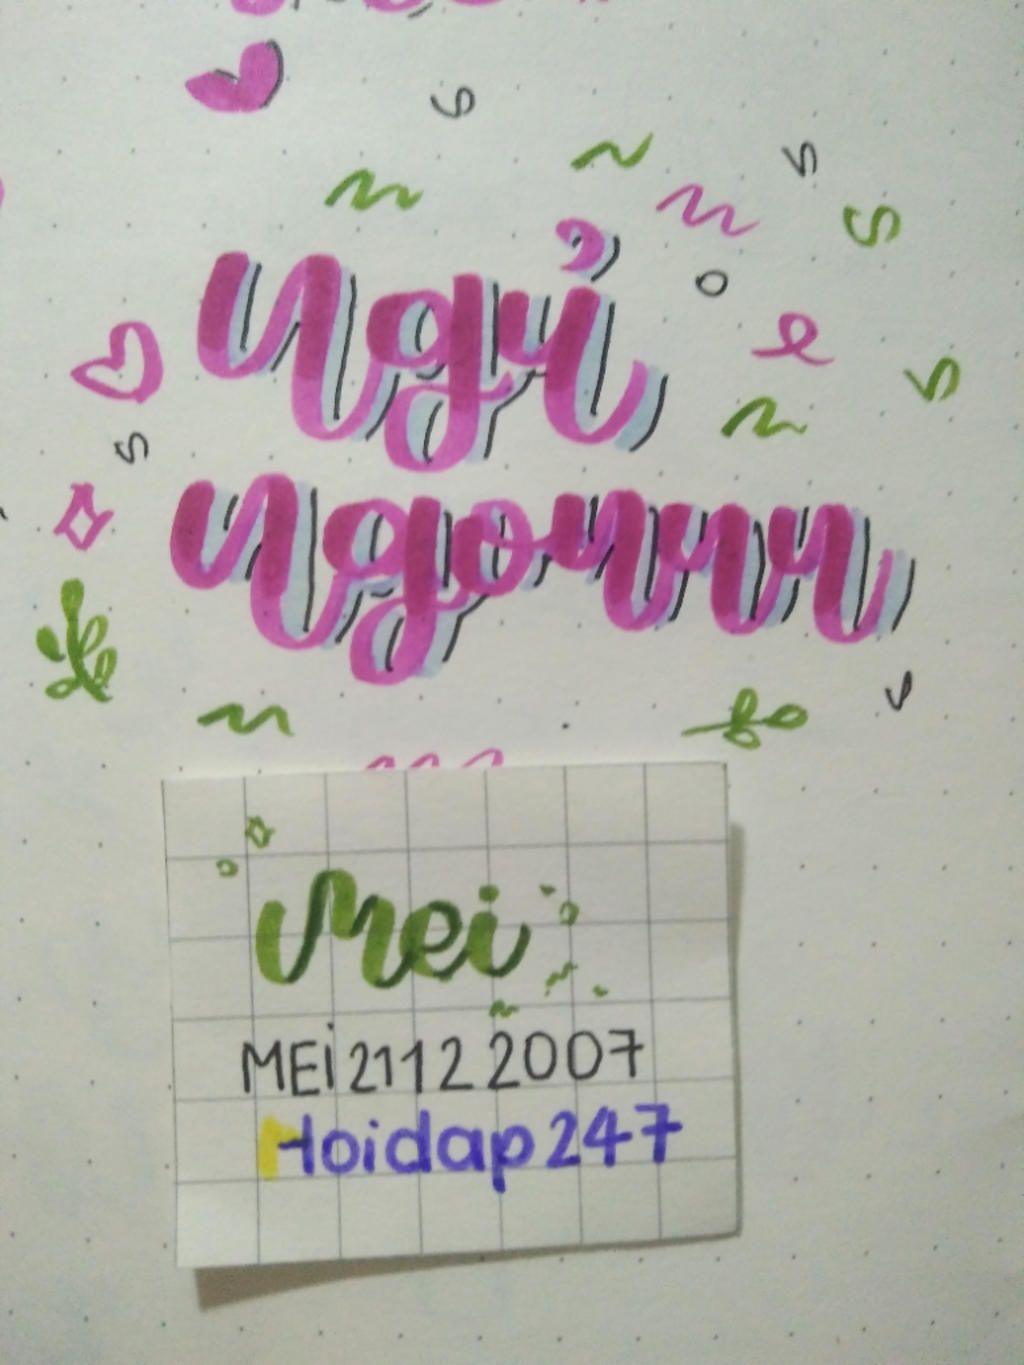 Ngỉ
Ngơnnn
Mei
MEi21122007
Hoidap247